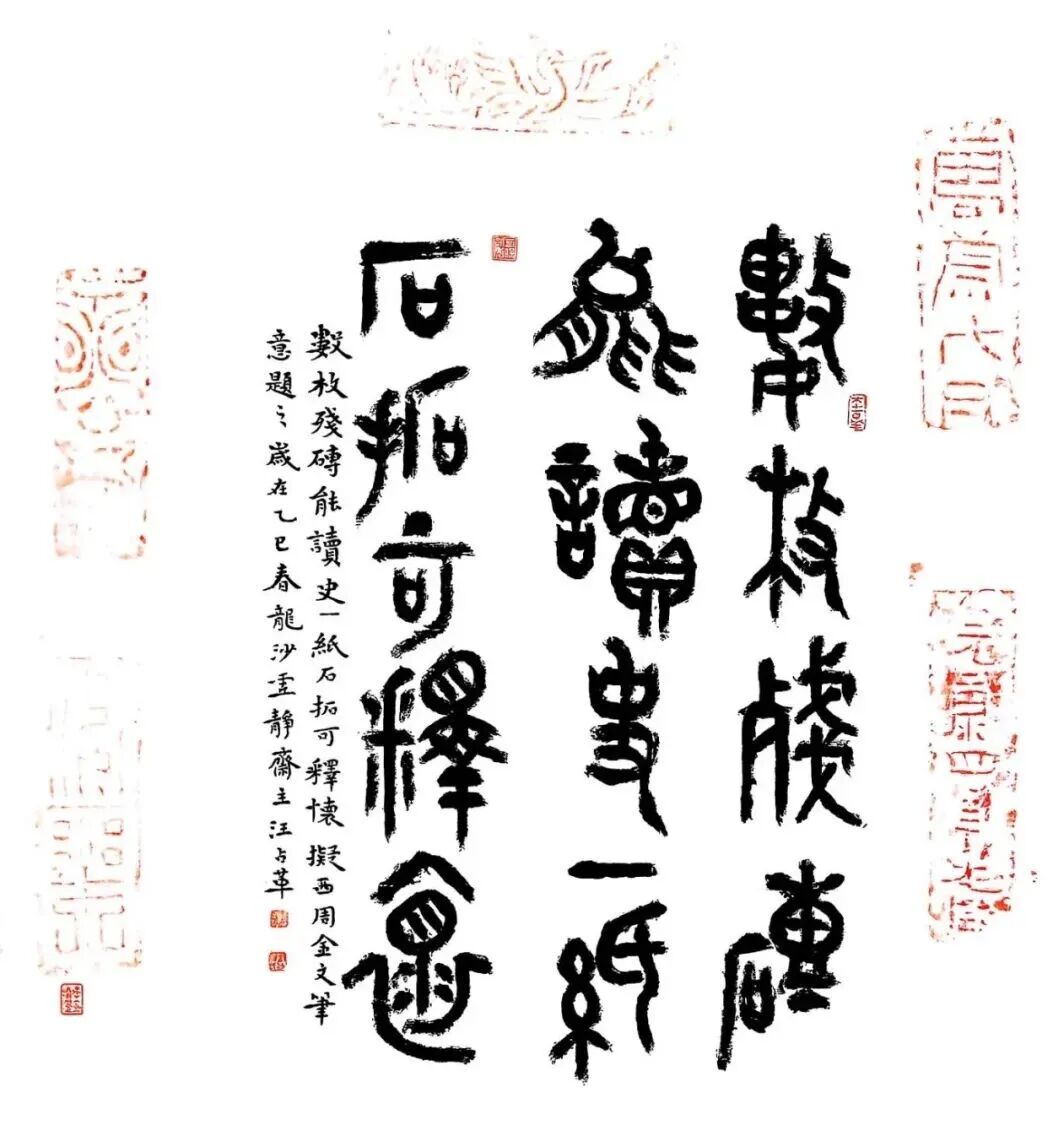 數枚殘磚
能讀史一紙
石拓可釋懷
數枚殘磚能讀史一紙石拓可釋懷擬西周金文筆
意題之歲在乙巳春龍沙靜齋主汪占革